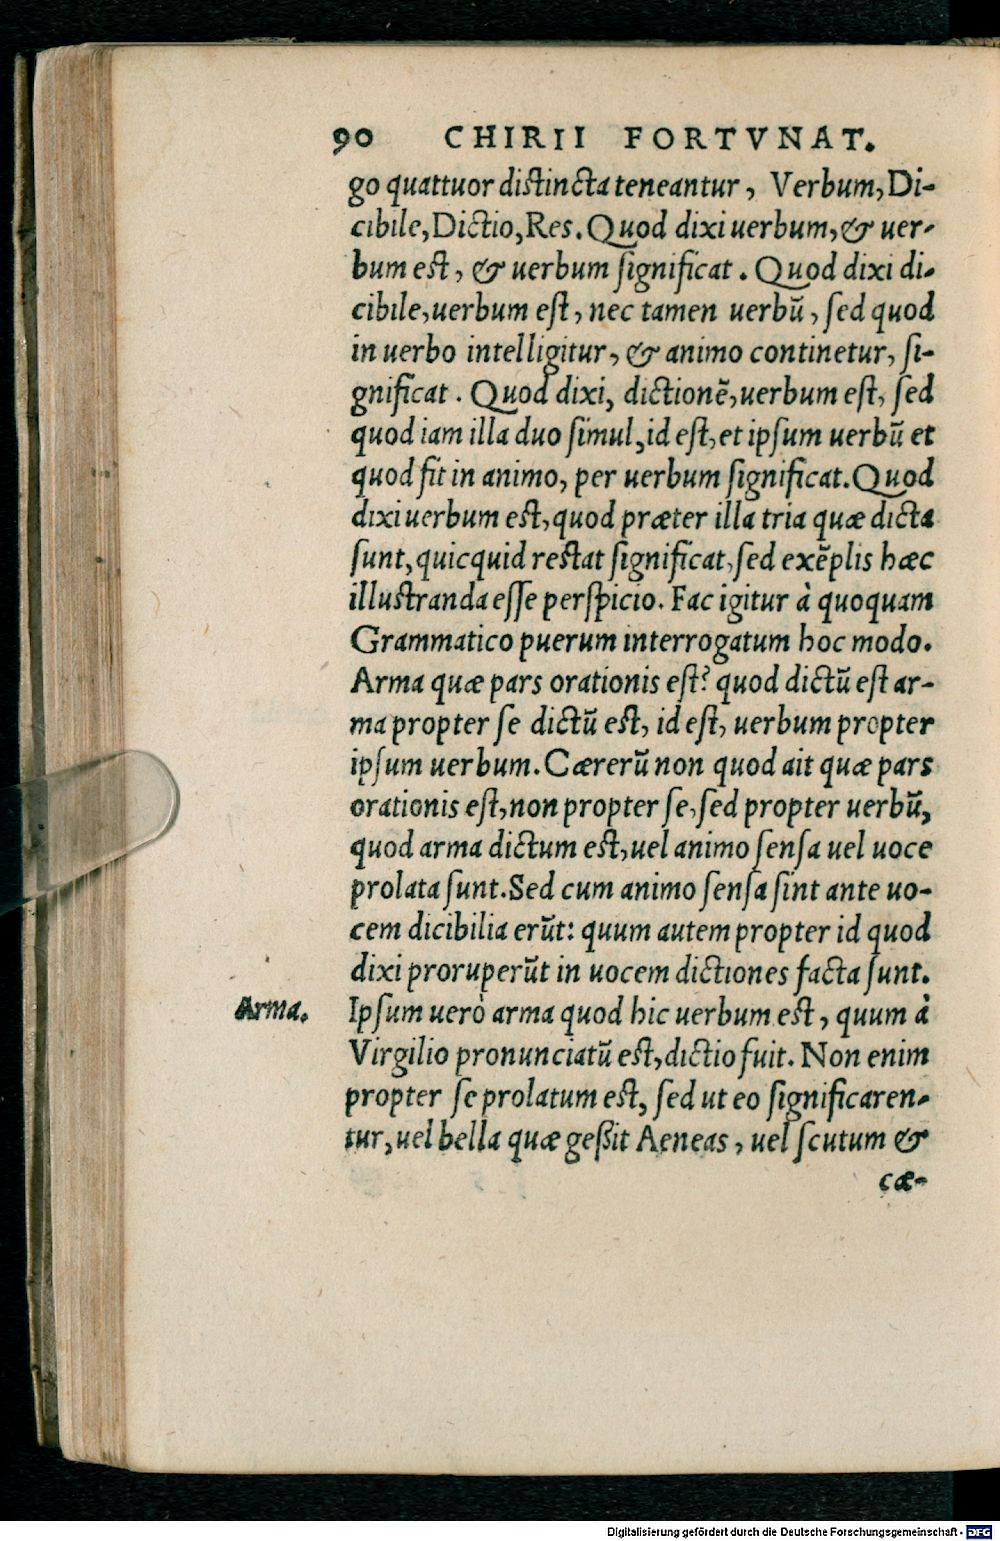 90 CHIRII FORTVNAT.
go quattuor distincta teneantur, Verbum, Di-
cibile, Dictio, Res. Quod dixi uerbum, & uer-
bum est, & uerbum significat. Quod dixi di-
cibile, uerbum est, nec tamen uerbū, sed quod
in uerbo intelligitur, & animo continetur, si-
gnificat. Quod dixi, dictionē, uerbum est, sed
quod iam illa duo simul, id est, et ipsum uerbū et
quod fit in animo, per uerbum significat. Quod
dixi uerbum est, quod præter illa tria quæ dicta
sunt, quicquid restat significat, sed exēplis hæc
illustranda esse perspicio. Fac igitur à quoquam
Grammatico puerum interrogatum hoc modo.
Arma quæ pars orationis est? quod dictū est ar-
ma propter se dictū est, id est, uerbum propter
ipsum uerbum. Cærerū non quod ait quæ pars
orationis est, non propter se, sed propter uerbū,
quod arma dictum est, uel animo sensa uel uoce
prolata sunt. Sed cum animo sensa sint ante uo-
cem dicibilia erūt: quum autem propter id quod
dixi proruperūt in uocem dictiones facta sunt.
Arma. Ipsum uerò arma quod hic uerbum est, quum à
Virgilio pronunciatū est, dictio fuit. Non enim
propter se prolatum est, sed ut eo significaren-
tur, uel bella quæ geßit Aeneas, uel scutum &
cæ-
Digitalisierung gefördert durch die Deutsche Forschungsgemeinschaft - DFG